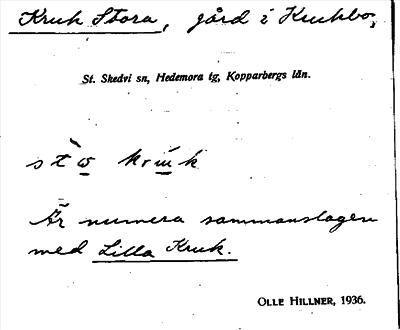 Kruk Stora, gård i Krukbo,
St. Skedvi sn, Hedemora tg, Kopparbergs län.
Är numera sammanslagen
med Lilla Kruk.
OLLE HILLNER, 1936.